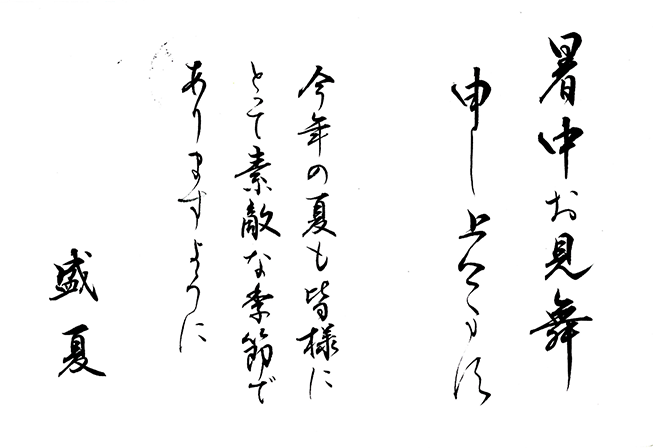 暑中お見舞
申し上げます
今年の夏も皆様に
とって素敵な季節で
ありますように
盛夏